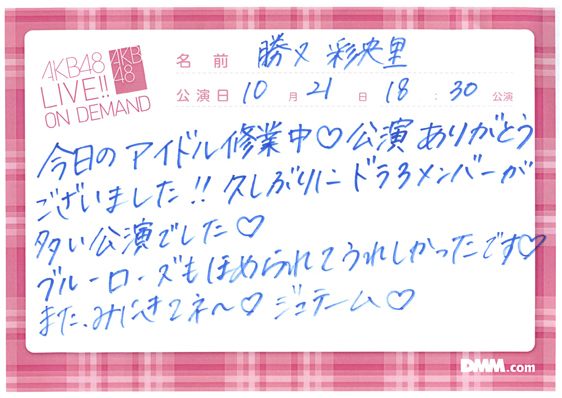 AKB48
LIVE!!
ON DEMAND
AKB
48
名前 勝又 彩央里
公演日 10月 21日 18:30 公演
今日の アイドル修業中♡公演 ありがとう
ございました!! 久しぶりに ドラ3メンバーが
多い公演でした♡
ブルーローズも ほめられて うれしかったです♡
また、みにきてネ〜♡ ジュテーム♡
DMM.com